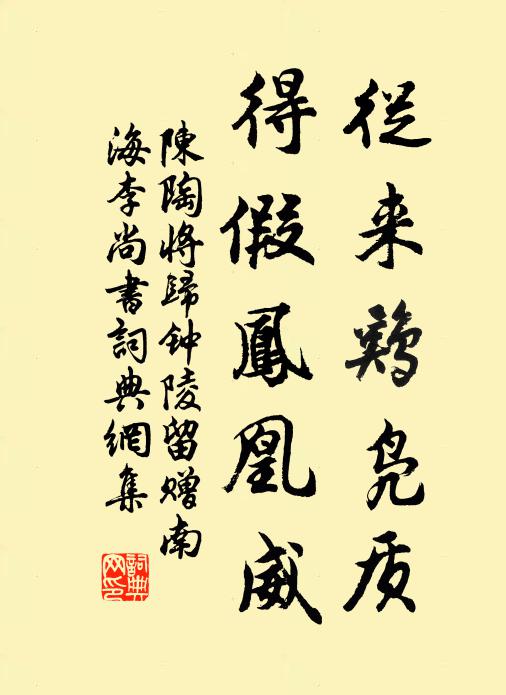 従来鷄凫质
得假鳳凰威
陳陶將歸钟陵留赠南
海李尚書詞典網集
詞典网印